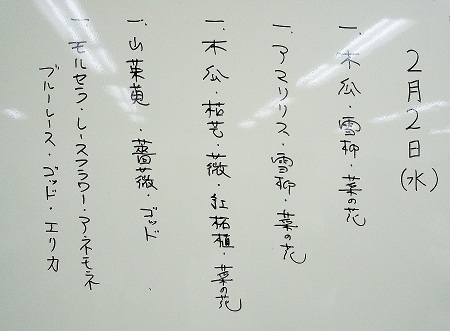 2月2日(水)
一、木瓜・雪柳・菜の花
一、アマリリス・雪柳・菜の花
一、木瓜・枯芒・薇・紅柘植・菜の花
一、山茱萸・薔薇・ゴッド
一、モルセラ・レースフラワー・アネモネ
ブルーレース・ゴッド・エリカ